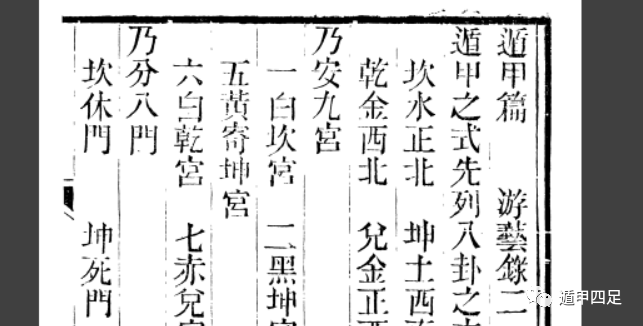 遁甲篇　游藝錄二
遁甲之式先列八卦之
坎水正北　坤土西
乾金西北　兌金正西
乃安九宮
一白坎宮　二黑坤宮
五黃寄坤宮
六白乾宮　七赤兌宮
乃分八門
坎休門　坤死門
遁甲四足